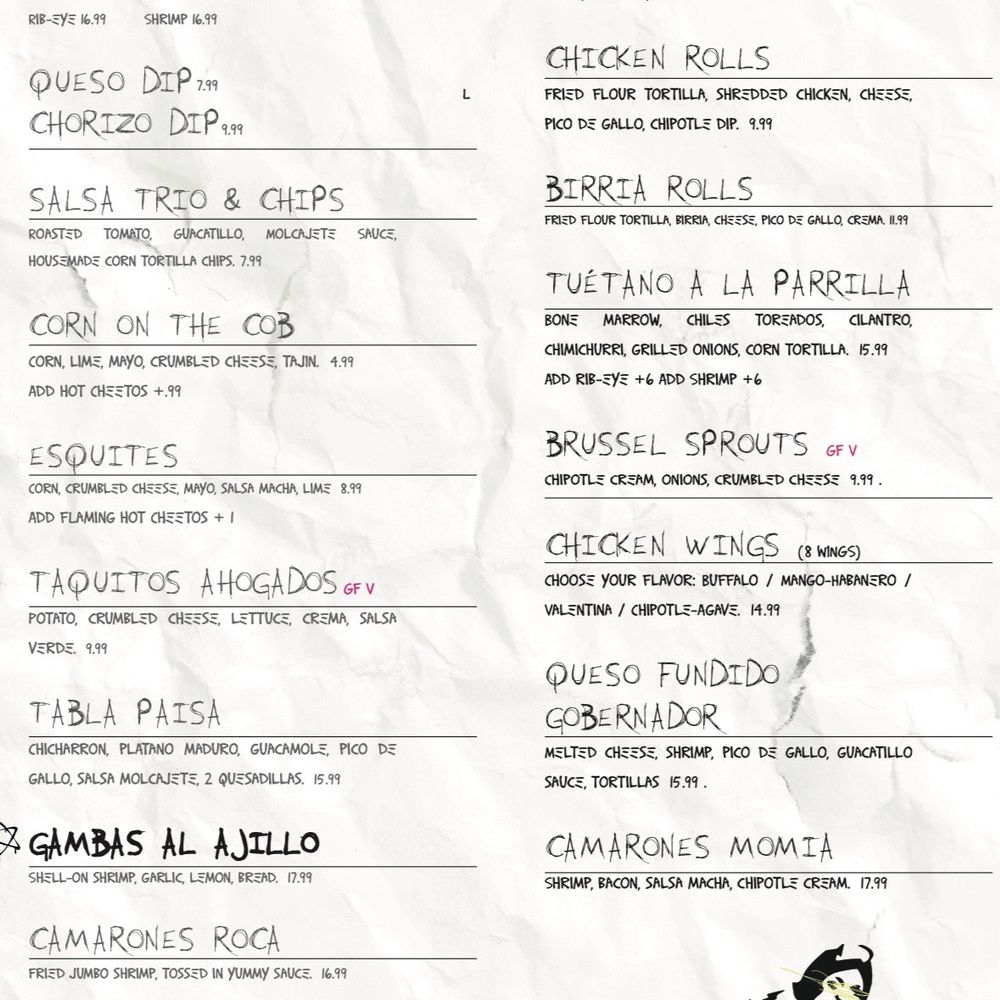 RIB-EYE 16.99 SHRIMP 16.99
QUESO DIP 7.99
CHORIZO DIP 9.99
SALSA TRIO & CHIPS
ROASTED TOMATO, GUACATILLO, MOLCAJETE SAUCE,
HOUSEMADE CORN TORTILLA CHIPS. 7.99
CORN ON THE COB
CORN, LIME, MAYO, CRUMBLED CHEESE, TAJIN. 4.99
ADD HOT CHEETOS +.99
ESQUITES
CORN, CRUMBLED CHEESE, MAYO, SALSA MACHA, LIME 8.99
ADD FLAMING HOT CHEETOS + 1
TAQUITOS AHOGADOS GF V
POTATO, CRUMBLED CHEESE, LETTUCE, CREMA, SALSA
VERDE. 9.99
TABLA PAISA
CHICHARRON, PLATANO MADURO, GUACAMOLE, PICO DE
GALLO, SALSA MOLCAJETE, 2 QUESADILLAS. 15.99
GAMBAS AL AJILLO
SHELL-ON SHRIMP, GARLIC, LEMON, BREAD. 17.99
CAMARONES ROCA
FRIED JUMBO SHRIMP, TOSSED IN YUMMY SAUCE. 16.99
L
CHICKEN ROLLS
FRIED FLOUR TORTILLA, SHREDDED CHICKEN, CHEESE,
PICO DE GALLO, CHIPOTLE DIP. 9.99
BIRRIA ROLLS
FRIED FLOUR TORTILLA, BIRRIA, CHEESE, PICO DE GALLO, CREMA. 11.99
TUÉTANO A LA PARRILLA
BONE MARROW, CHILES TOREADOS, CILANTRO,
CHIMICHURRI, GRILLED ONIONS, CORN TORTILLA. 15.99
ADD RIB-EYE +6 ADD SHRIMP +6
BRUSSEL SPROUTS GF V
CHIPOTLE CREAM, ONIONS, CRUMBLED CHEESE 9.99 .
CHICKEN WINGS (8 WINGS)
CHOOSE YOUR FLAVOR: BUFFALO / MANGO-HABANERO /
VALENTINA / CHIPOTLE-AGAVE. 14.99
QUESO FUNDIDO
GOBERNADOR
MELTED CHEESE, SHRIMP, PICO DE GALLO, GUACATILLO
SAUCE, TORTILLAS 15.99 .
CAMARONES MOMIA
SHRIMP, BACON, SALSA MACHA, CHIPOTLE CREAM. 17.99